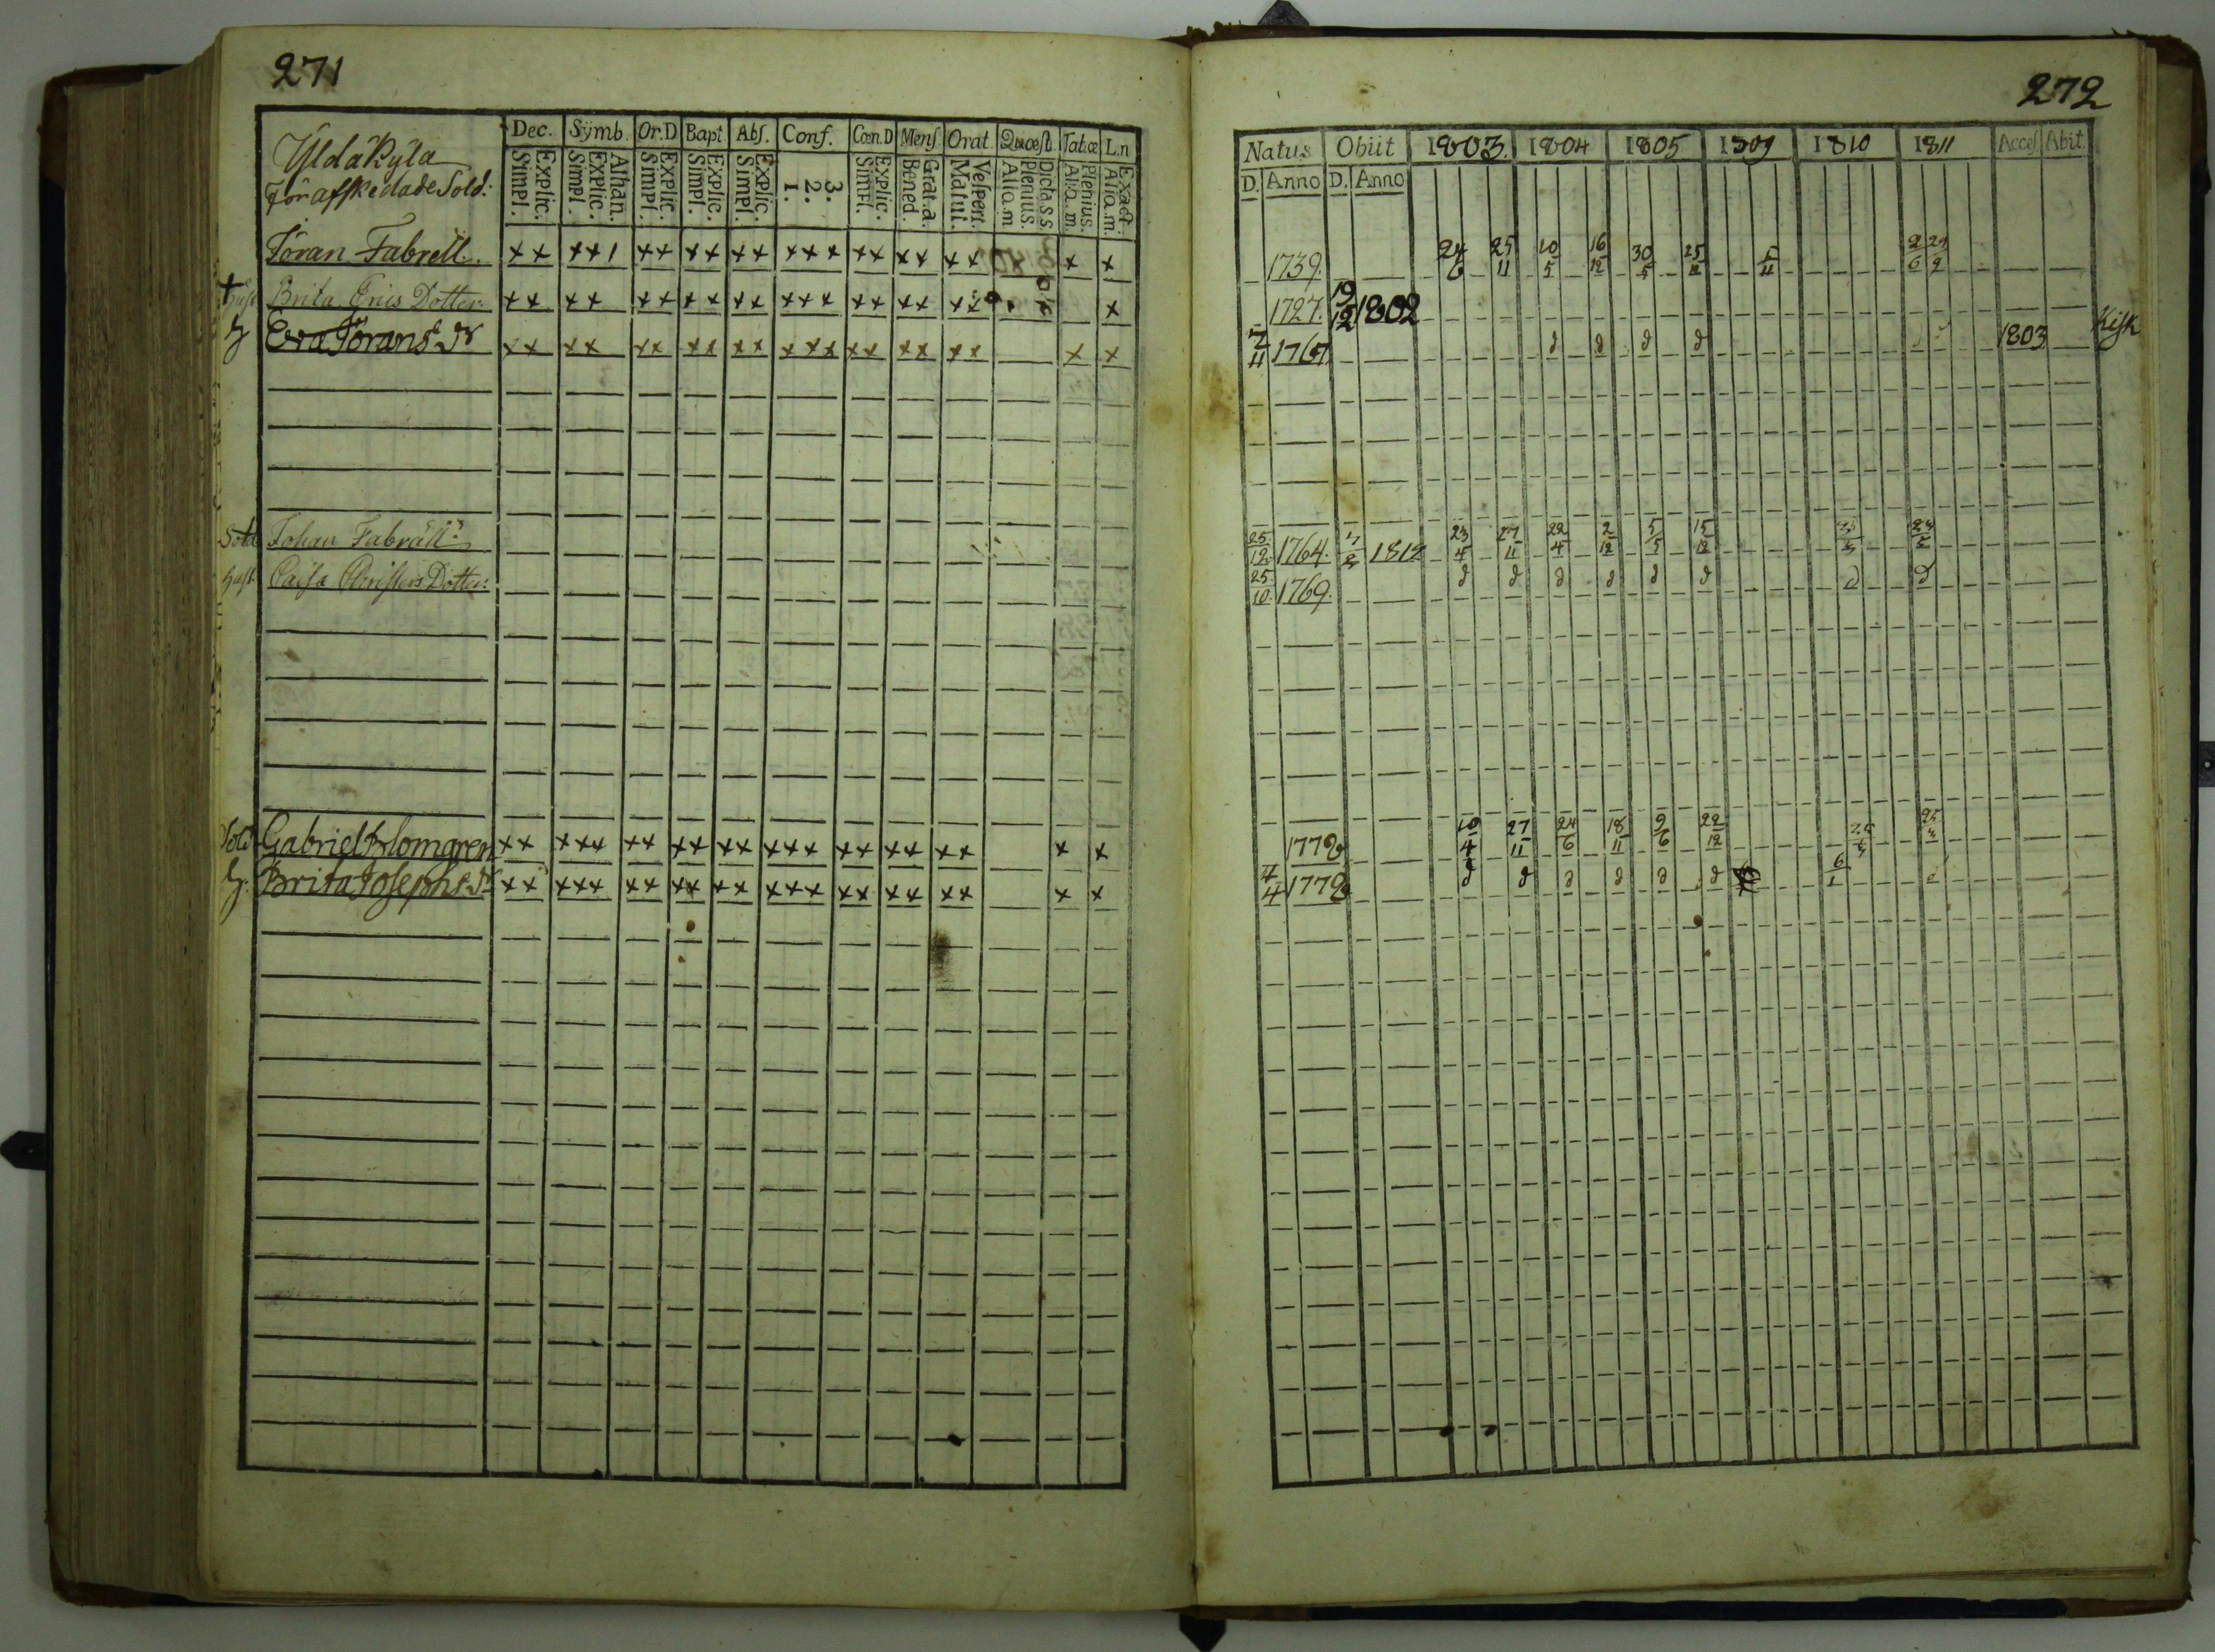 271
Yldäkylä
Förafskedade Sold:
Dec. Symb. Or.D Bapt. Abſ. Conf. Cœn.D Menſ Orat. Quæſt. Tab.æ L.n
Explic. Simpl. Athan. Explic. Simpl. Explic. Simpl. Explic. Simpl. Explic. Simpl. 3. 2. 1. Explic. Simpl. Grat.a. Bened. Veſpert. Matut. Dicta S S Plenius. Aliq.m Plenius. Aliq.m. Exact. Aliq.m.
Jöran Fabrell. ×× ××1 ×× ×× ×× ××× ×× ×× ×× × ×
† Huſt Brita Eries Dotter: ×× ×× ×× ×× ×× ××× ×× ×× ×× ×
H Eva Jörans dr ×× ×× ×× ×× ×× ××× ×× ×× ×× × ×
Sold Johan Fabräll:
Huſt. Caisa Christers Dotter:
Sold Gabriel Blomgren ×× ××× ×× ×× ×× ××× ×× ×× ×× × ×
H. Brita Josephs dr ×× ××× ×× ×× ×× ××× ×× ×× ×× × ×
272
Natus Obiit 1803. 1804 1805 1809 1810 1811 Acceſ Abit.
D. Anno D. Anno
1739. 24/6 25/11 10/5 16/12 30/5 25/12 5/11 2/6 29/9
1727. 19/12 1802
7/11 1767 d d d d 1803 Kiſk
25/12 1764. 1812 23/4 27/11 22/4 2/12 5/5 15/12 23/5
25/10. 1769. d d d d d d d d
1772 10/4 27/11 24/6 18/11 9/6 22/12
4/4 1772 d d d d d d 6/1 d